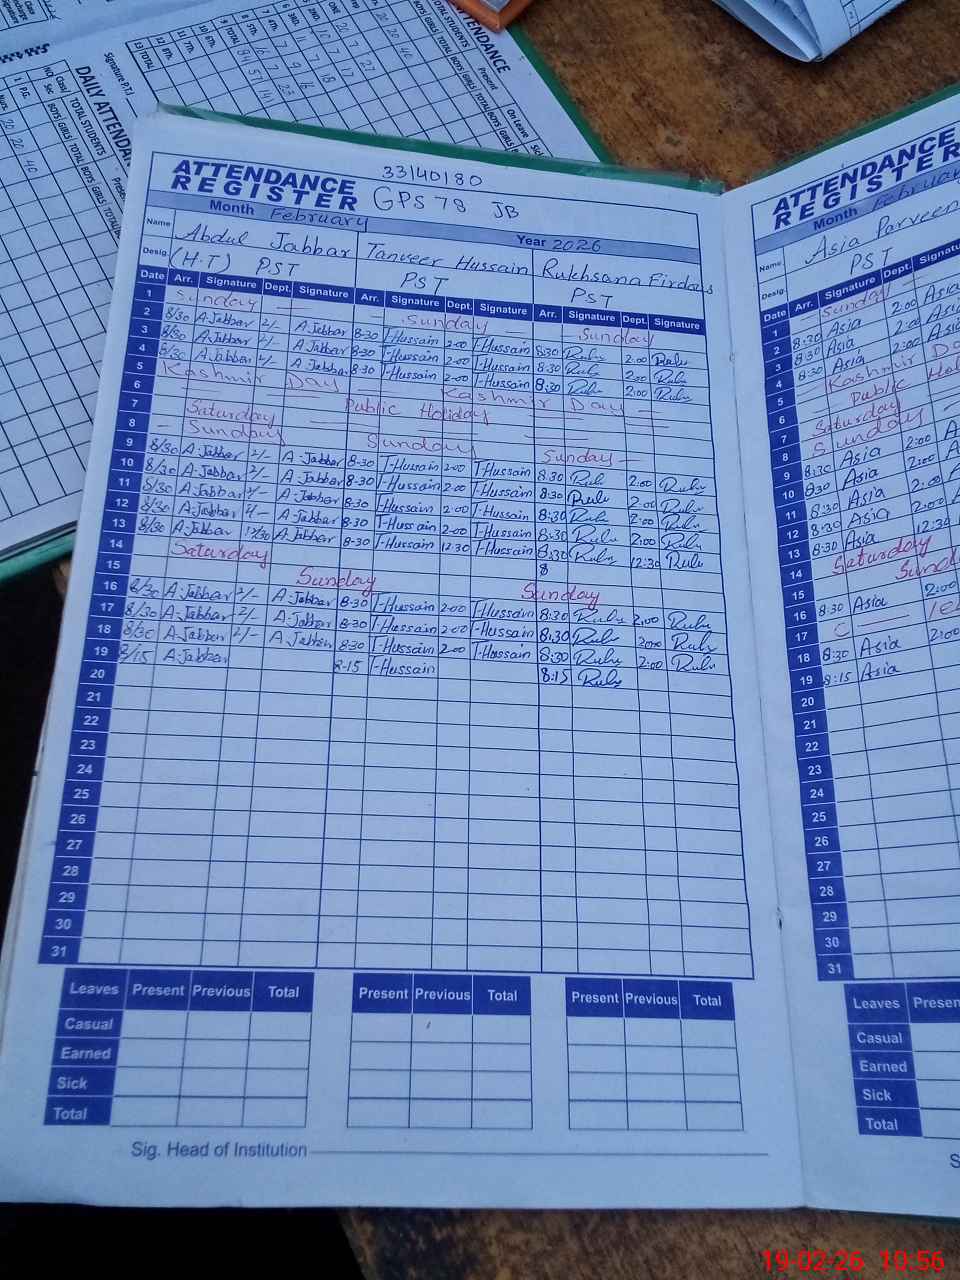 33140180
ATTENDANCE REGISTER GPS 78 JB
Month February Year 2026
Name Abdul Jabbar Tanveer Hussain Rukhsana Firdous
Desig. (H.T) PST PST PST
Date Arr. Signature Dept. Signature Arr. Signature Dept. Signature Arr. Signature Dept. Signature
1 Sunday Sunday Sunday
2 8/30 A.Jabbar 2/- A.Jabbar 8-30 T-Hussain 2-00 T-Hussain 8:30 Ruby 2:00 Ruby
3 8/30 A.Jabbar 2/- A.Jabbar 8-30 T-Hussain 2-00 T-Hussain 8:30 Ruby 2:00 Ruby
4 8/30 A.Jabbar 2/- A.Jabbar 8-30 T-Hussain 2-00 T-Hussain 8:30 Ruby 2:00 Ruby
5 Kashmir Day Kashmir Day
6 Public Holiday
7 Saturday
8 Sunday Sunday Sunday
9 8/30 A.Jabbar 2/- A.Jabbar 8-30 T-Hussain 2-00 T-Hussain 8:30 Ruby 2:00 Ruby
10 8/30 A.Jabbar 2/- A.Jabbar 8-30 T-Hussain 2-00 T-Hussain 8:30 Ruby 2:00 Ruby
11 8/30 A.Jabbar 2/- A.Jabbar 8-30 T-Hussain 2-00 T-Hussain 8:30 Ruby 2:00 Ruby
12 8/30 A.Jabbar A.Jabbar 8-30 T-Hussain 2-00 T-Hussain 8:30 Ruby 2:00 Ruby
13 8/30 A.Jabbar 12/30 A.Jabbar 8-30 T-Hussain 12-30 T-Hussain 8:30 Ruby 12:30 Ruby
14 Saturday 8
15 Sunday Sunday
16 8/30 A.Jabbar 2/- A.Jabbar 8-30 T-Hussain 2-00 T-Hussain 8:30 Ruby 2:00 Ruby
17 8/30 A.Jabbar 2/- A.Jabbar 8-30 T-Hussain 2-00 T-Hussain 8:30 Ruby 2:00 Ruby
18 8/30 A.Jabbar 2/- A.Jabbar 8-30 T-Hussain 2-00 T-Hussain 8:30 Ruby 2:00 Ruby
19 8/15 A.Jabbar 8-15 T-Hussain 8:15 Ruby
20
21
22
23
24
25
26
27
28
29
30
31
Leaves Present Previous Total Present Previous Total Present Previous Total
Casual
Earned
Sick
Total
Sig. Head of Institution
ATTENDANCE
REGISTER
Month February
Name Asia Parveen
Desig. PST
Date Arr. Signature Dept.
1 Sunday
2 8:30 Asia 2:00 Asia
3 8:30 Asia 2:00 Asia
4 8:30 Asia 2:00 Asia
5 Kashmir
6 Public
7 Saturday
8 Sunday
9 8:30 Asia 2:00
10 8:30 Asia 2:00
11 8:30 Asia 2:00
12 8:30 Asia 2:00
13 8:30 Asia 12:30
14 Saturday
15
16 8:30 Asia 2:00
17
18 8:30 Asia 2:00
19 8:15 Asia
20
21
22
23
24
25
26
27
28
29
30
31
Leaves
Casual
Earned
Sick
Total
DAILY ATTENDAN
TOTAL STUDENTS
BOYS GIRLS TOTAL
P.G.
20 20 40
Signature P.T.I.
ATTENDANCE
Present
On Leave
BOYS GIRLS TOTAL
19-02-26 10:56